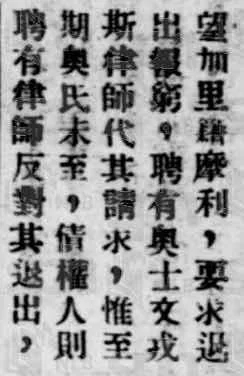 望加里礁摩利，要求退
出報窮，聘有奧士文戎
斯律師代其請求，惟至
期奧氏未至，債權人則
聘有律師反對其退出，